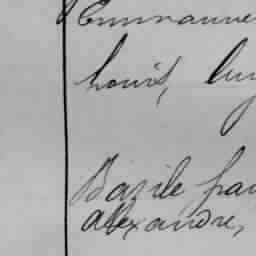 Emmanue
Louis, Eug
Basile fra
alexandre,